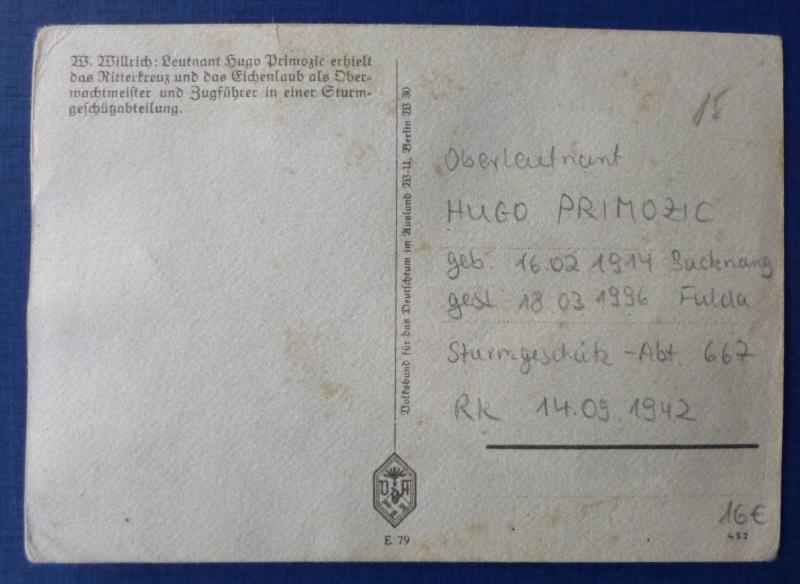 W. Willrich: Leutnant Hugo Primozic erhielt
das Ritterkreuz und das Eichenlaub als Ober-
wachtmeister und Zugführer in einer Sturm-
geschützabteilung.
Volksbund für das Deutschtum im Ausland W-U, Berlin W 30
VDA
E 79
15
Oberleutnant
HUGO PRIMOZIC
geb. 16.02 1914 Backnang
gest 18 03 1996 Fulda
Sturmgeschütz-Abt 667
RK 14.09 1942
16€
432